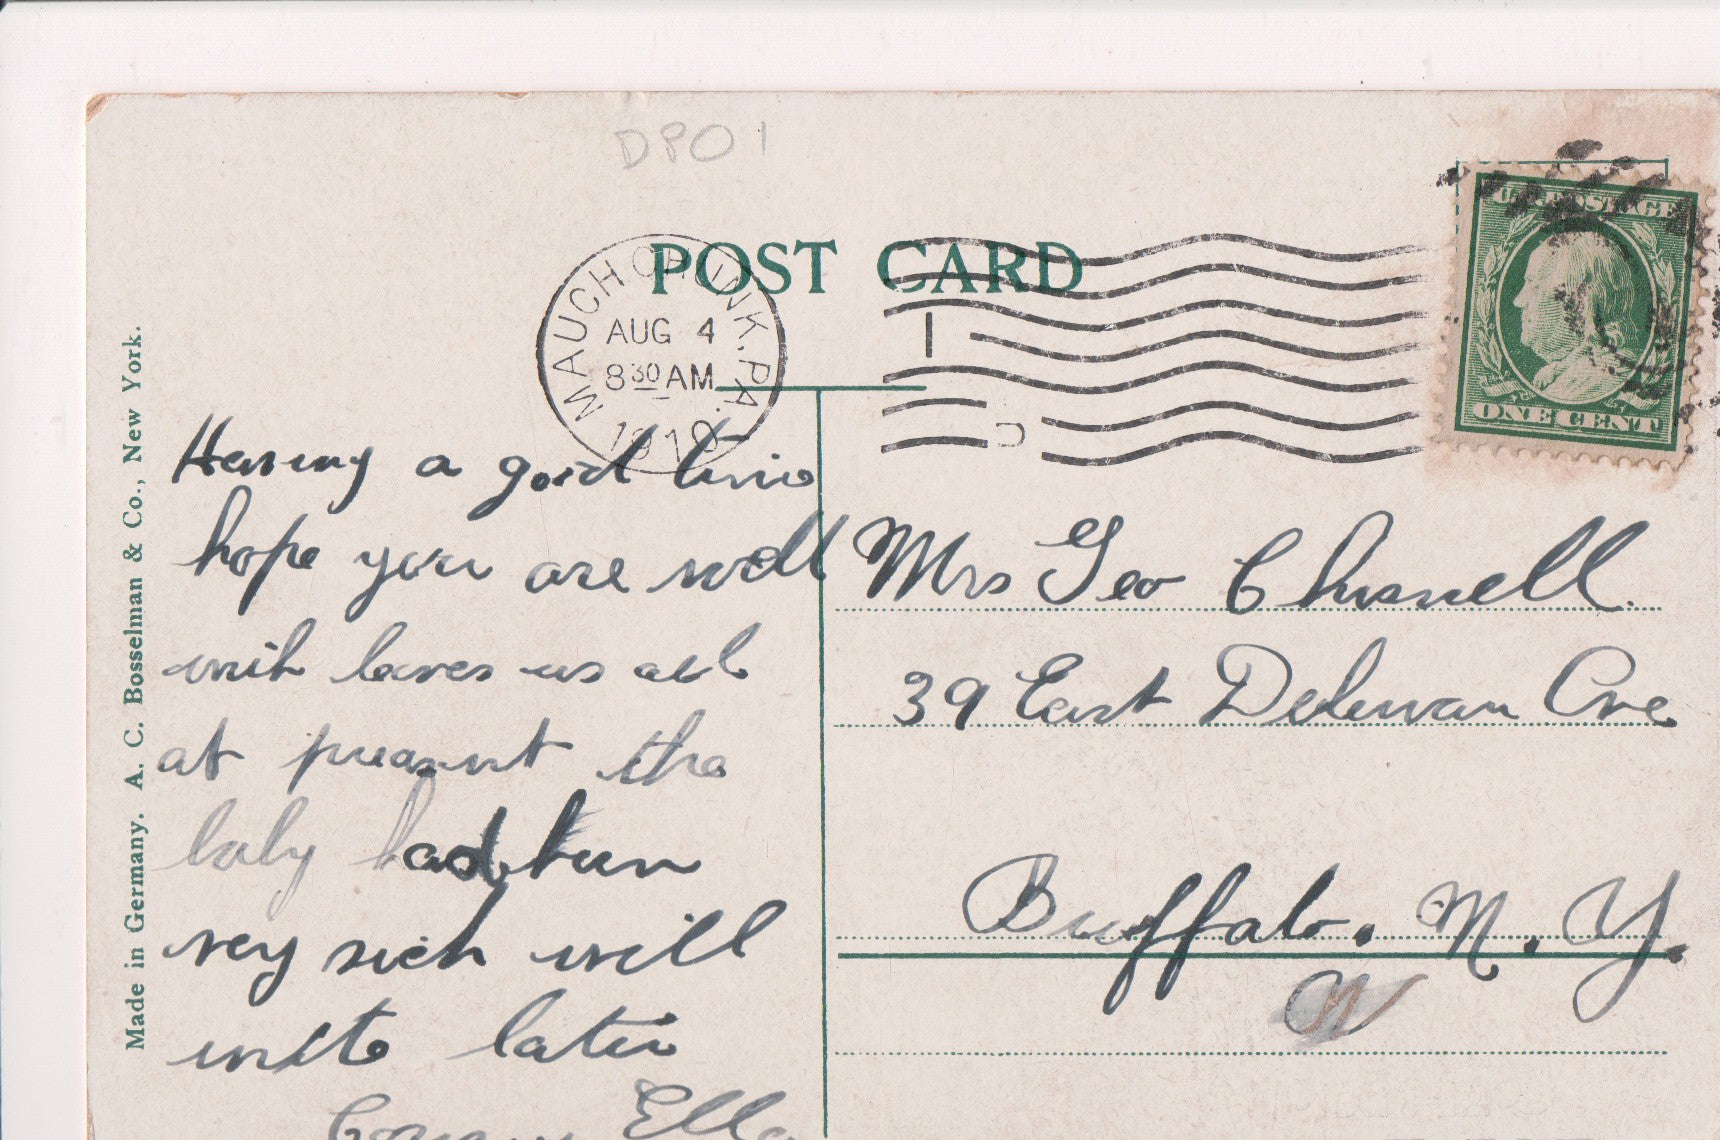 DPO 1
POST CARD
MAUCH CHUNK. PA.
AUG 4
8 30 AM
1910
U.S. POSTAGE
ONE CENT
Made in Germany. A. C. Bosselman & Co., New York.
Having a good time
hope you are well
with leaves us all
at present the
baby had been
very sick will
write later
Ella
Mrs Geo
39 East Delevan Ave
Buffalo. N. Y.